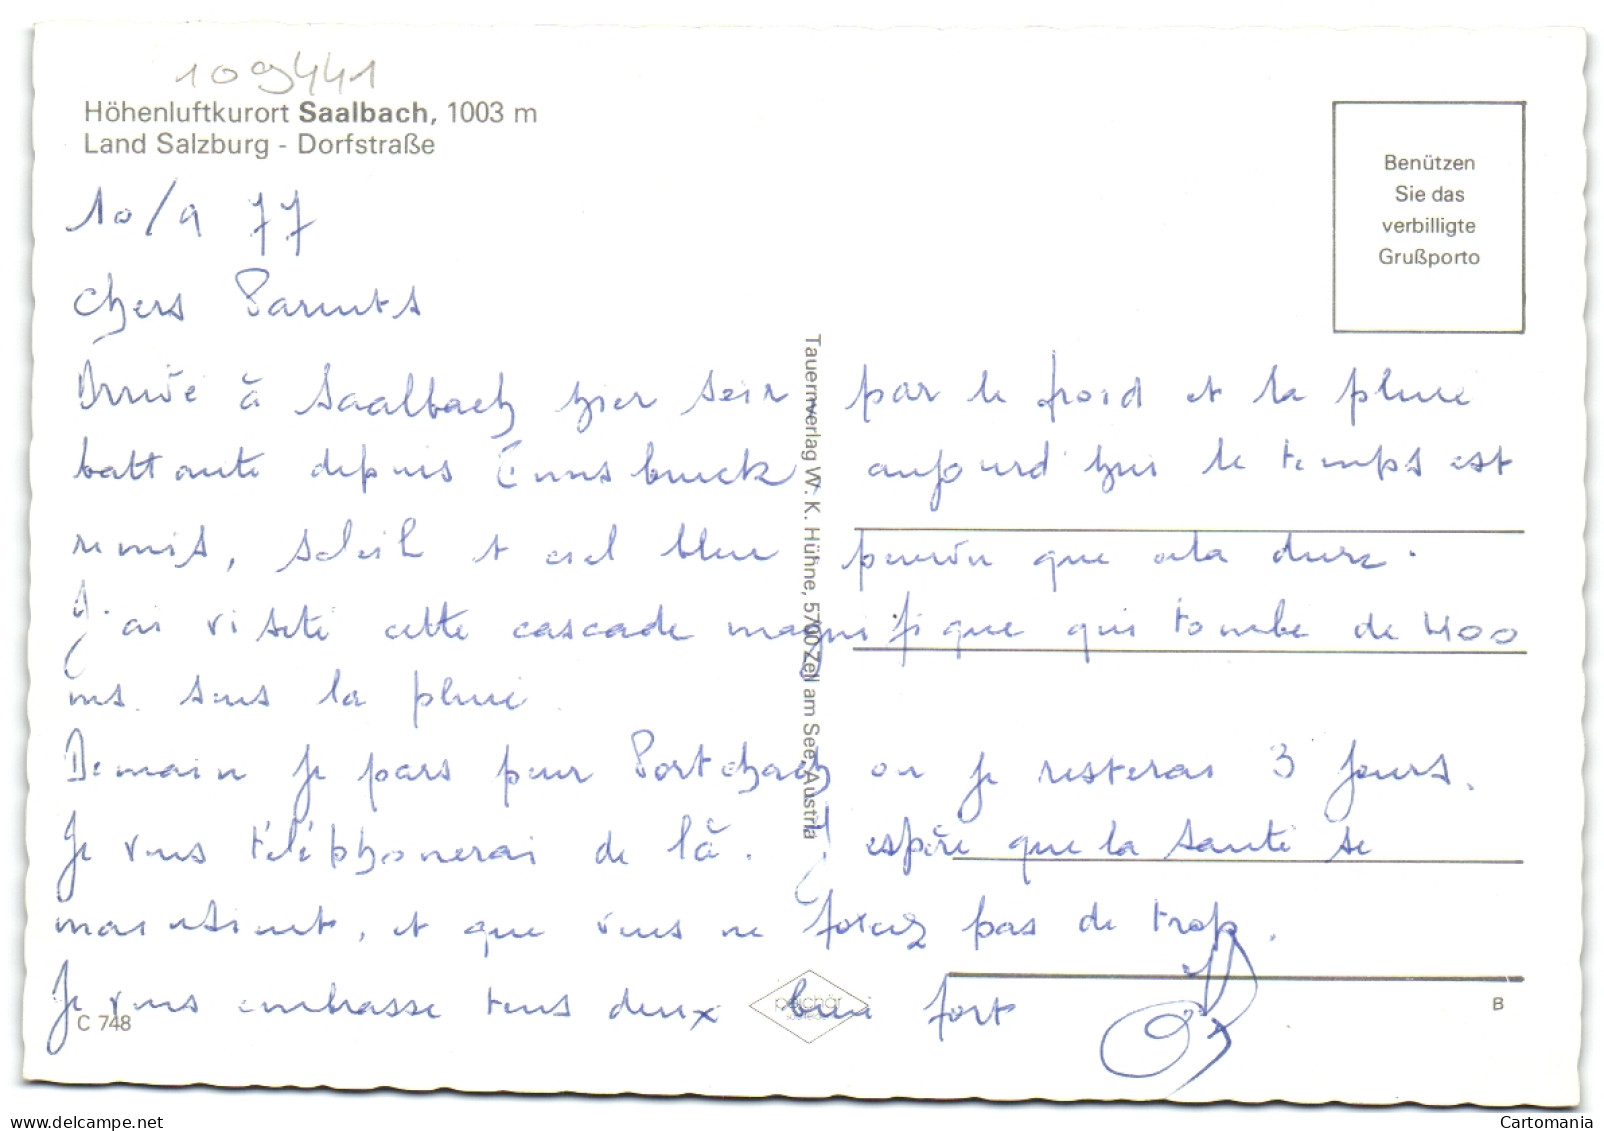 109441
Höhenluftkurort Saalbach, 1003 m
Land Salzburg - Dorfstraße
Benützen
Sie das
verbilligte
Grußporto
10/9 77
Chers Parents
Arrivé à Saalbach hier soir par le froid et la pluie
battante depuis Innsbruck, aujourd'hui le temps est
remis, soleil et ciel bleu pourvu que cela dure.
J'ai visité cette cascade magnifique qui tombe de 400
ms. sous la pluie
Demain je pars pour Portchach ou je resterai 3 jours.
Je vous téléphonerai de là. J'espère que la santé se
maintient, et que vous ne forcez pas de trop.
Je vous embrasse tous deux bien fort
Tauernverlag W. K. Hühne, 5700 Zell am See, Austria
C 748
B
delcampe.net
Cartomania